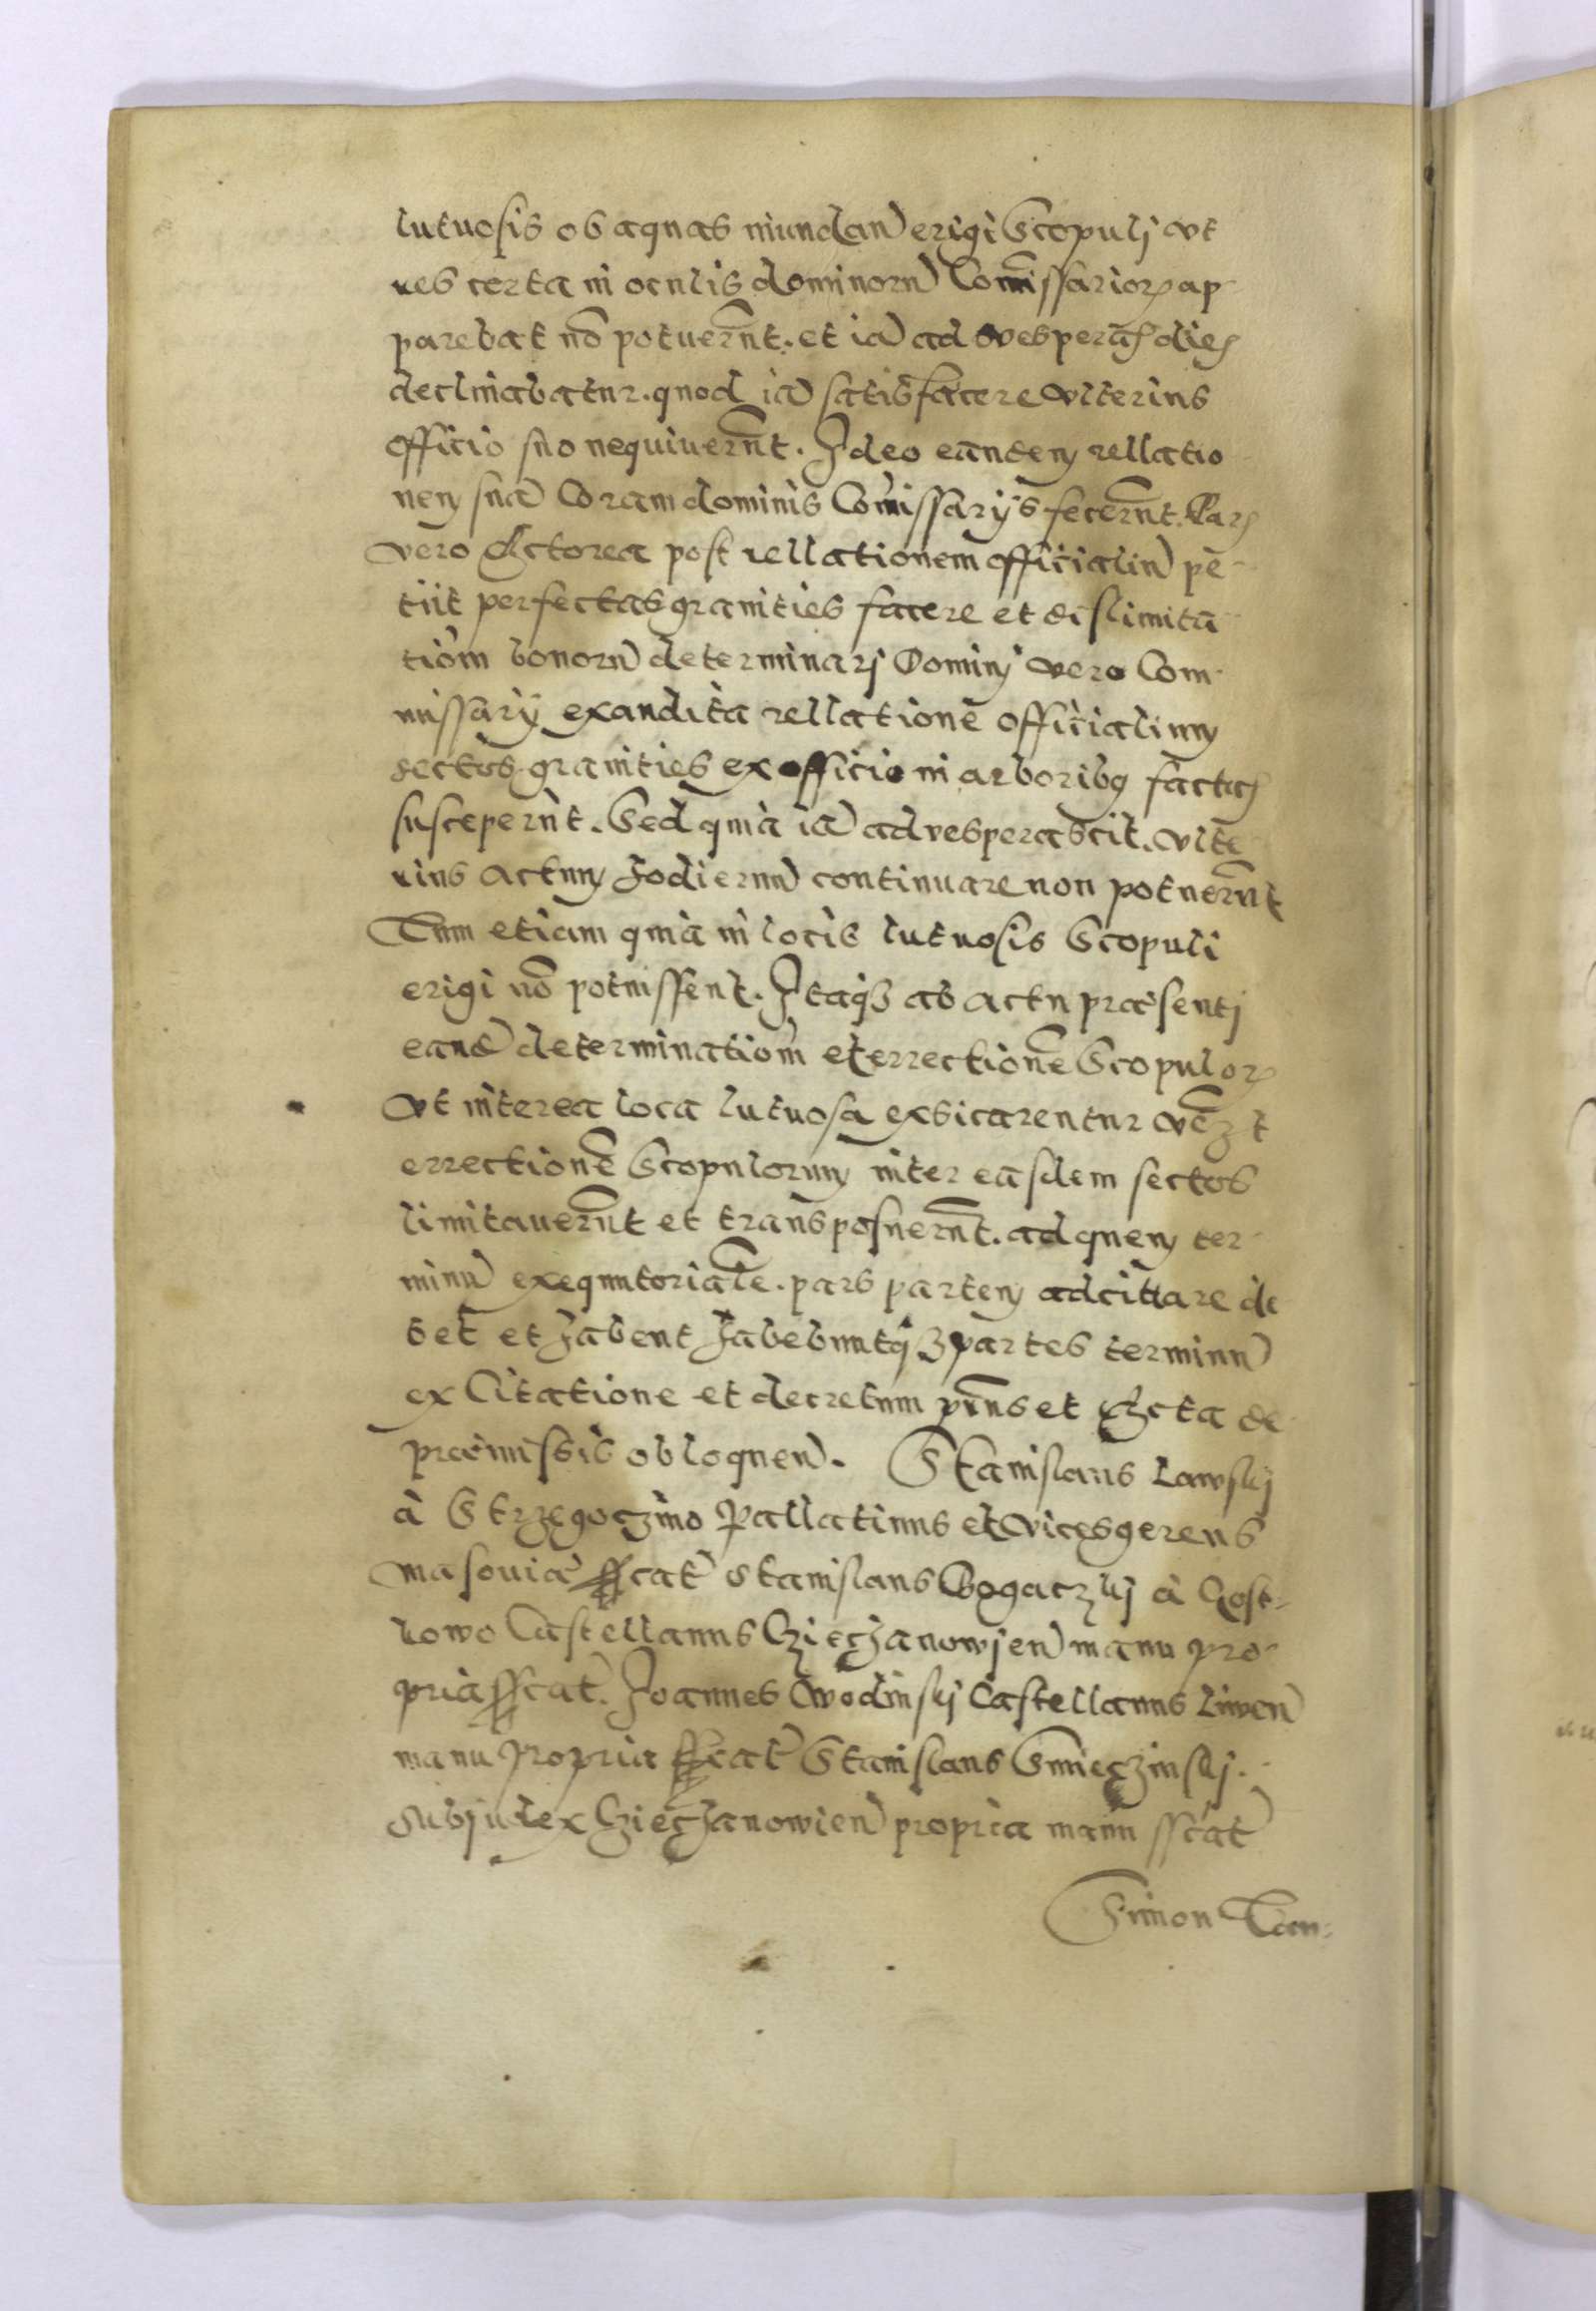 lutuosis ob aquas inundan) erigi Scopulj vt
res certa in oculis dominoru) Com̃issarioꝝ ap-
parebat nõ potuerũt. et ia) ad vesperas dies
declinabatur. quod ia) satisfacere vlterius
officio suo nequiuerũt. Ideo eandem rellatio
nem sua) Coram dominis Com̃issarijs fecerũt. Pars
vero Actorea post rellationem officialiu) pe-
tiit perfectas granities facere et dislimita
tiom̃ bonoru) determinarj Dominj vero Com-
missarij exaudita rellationẽ officialium
sectos granities ex officio in arboribꝫ factas
susceperũt. Sed quia ia) advesperascit. vlte-
rius actum hodiernu) continuare non potuerũt
Tum etiam quia in locis lutuosis Scopuli
erigi nõ potuissent. Itaqꝫ ab actu præsentj
eand) determinatiom̃ et errectionẽ Scopuloꝝ
vt interea loca lutuosa exsicarentur
errectionẽ Scopulorum inter easdem sectos
limitauerũt et transposuerũt. ad quem ter-
minu) exequutorialẽ. pars partem adcittare de
bet et habent habebuntqꝫ partes terminu)
ex Citatione et decretum pñs et Acta de
præmissis obloquen). Stanislaus Lawskj
à Strzegoczino Pallatinus et vicesgerens
masouiæ sscat) Stanislaus Bogaczkj à Gost-
kowo Castellanus Cziechanowien) manu pro-
pria sscat). Joannes Wodinskj Castellanus Liwen)
manu propria sscat) Stanislaus Smieczinskj.
Subjudex Cziechanowien) propria manu sscat)
Simon Tan-